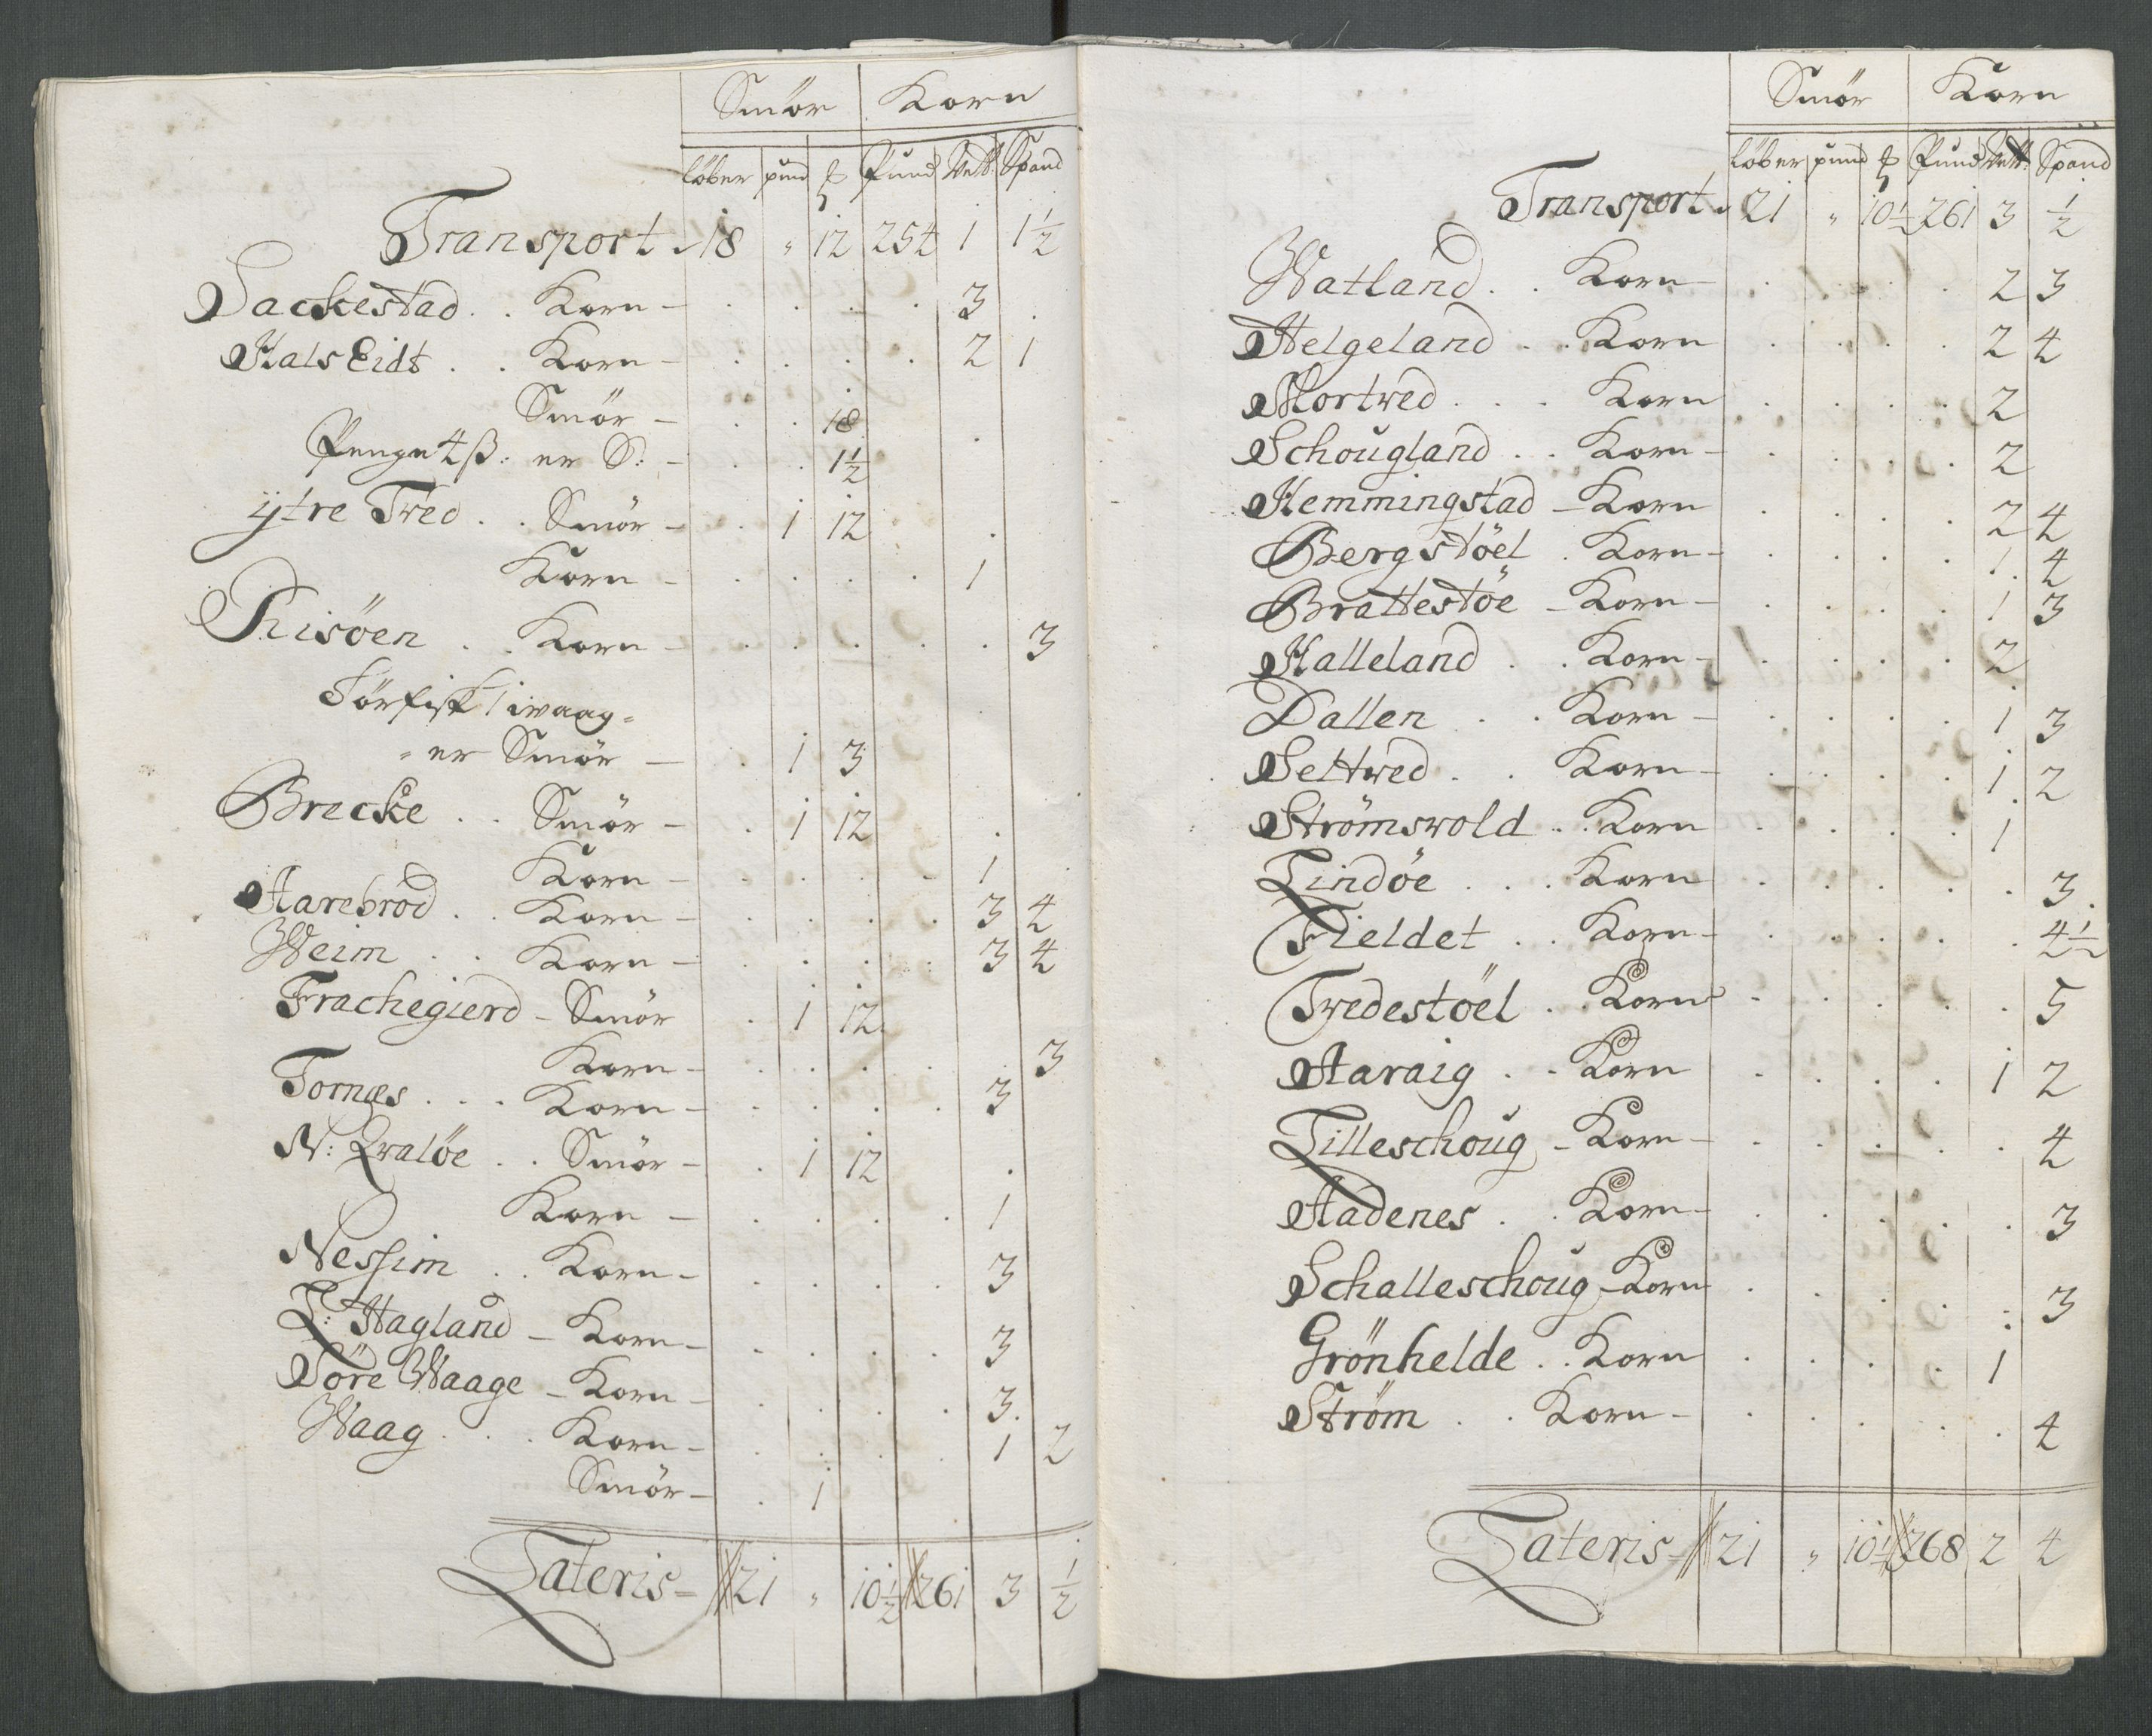 Smör Korn
löber pund ℔ Pund Vett: Spand
Transport 18 " 12 254 1 1½
Sackestad . . Korn 3
Hals Eidt . . Korn 2 1
Smör 18
Penge 4 ß: er S: 1½
ÿtre Tved . . Smör 1 12
Korn 1
Risöen . . Korn 3
Törfisk 1 waag
er Smör 1 3
Brecke . . Smör 1 12
Korn 1
Aarebrod . . Korn 3 4
Weim . . Korn 3 4
Frachegierd Smör 1 12
Korn 3
Tornæs . . . Korn 3
N: Qvalöe . . Smör 1 12
Korn 1
Nessim . . Korn 3
L: Hagland Korn 3
Söre Waage Korn 3
Waag . . . Korn 1 2
Smör 1
Lateris 21 " 10½ 261 3 ½
Smör Korn
löber pund ℔ Pund Vett: Spand
Transport 21 " 10½ 261 3 ½
Watland . . Korn 2 3
Helgeland . . Korn 2 4
Mortved . . . Korn 2
Schougland . . Korn 2
Hemmingstad Korn 2 4
Bergstöel . Korn 1 4
Brattestöe Korn 1 3
Halleland . . Korn 2
Dallen . . Korn 1 3
Settved . . Korn 1 2
Strömswold . . Korn 1
Lindöe . . . Korn 3
Fieldet . . Korn 4½
Tvedestöel . . Korn 5
Aaraig . . Korn 1 2
Lilleschoug Korn 4
Aadenes . . Korn 3
Schalleschoug Korn 3
Grönhelde . . Korn 1
Ström . . Korn 4
Lateris 21 " 10½ 268 2 4